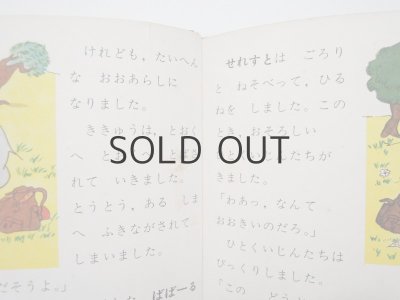 けれども、たいへん
な おおあらしに
なりました。
ききゅうは、とおく
へ とおくへ とばさ
れて いきました。
とうとう、ある しま
へ ふきながされて
しまいました。
だそうよ。」
ばばーる
せれすとは ごろり
と ねそべって、ひる
ねを しました。この
とき、おそろしい
ひとくいじんたちが
きました。
「わあっ、なんて
おおきいのだろ。」
ひとくいじんたちは
びっくりしました。
「この
SOLD OUT